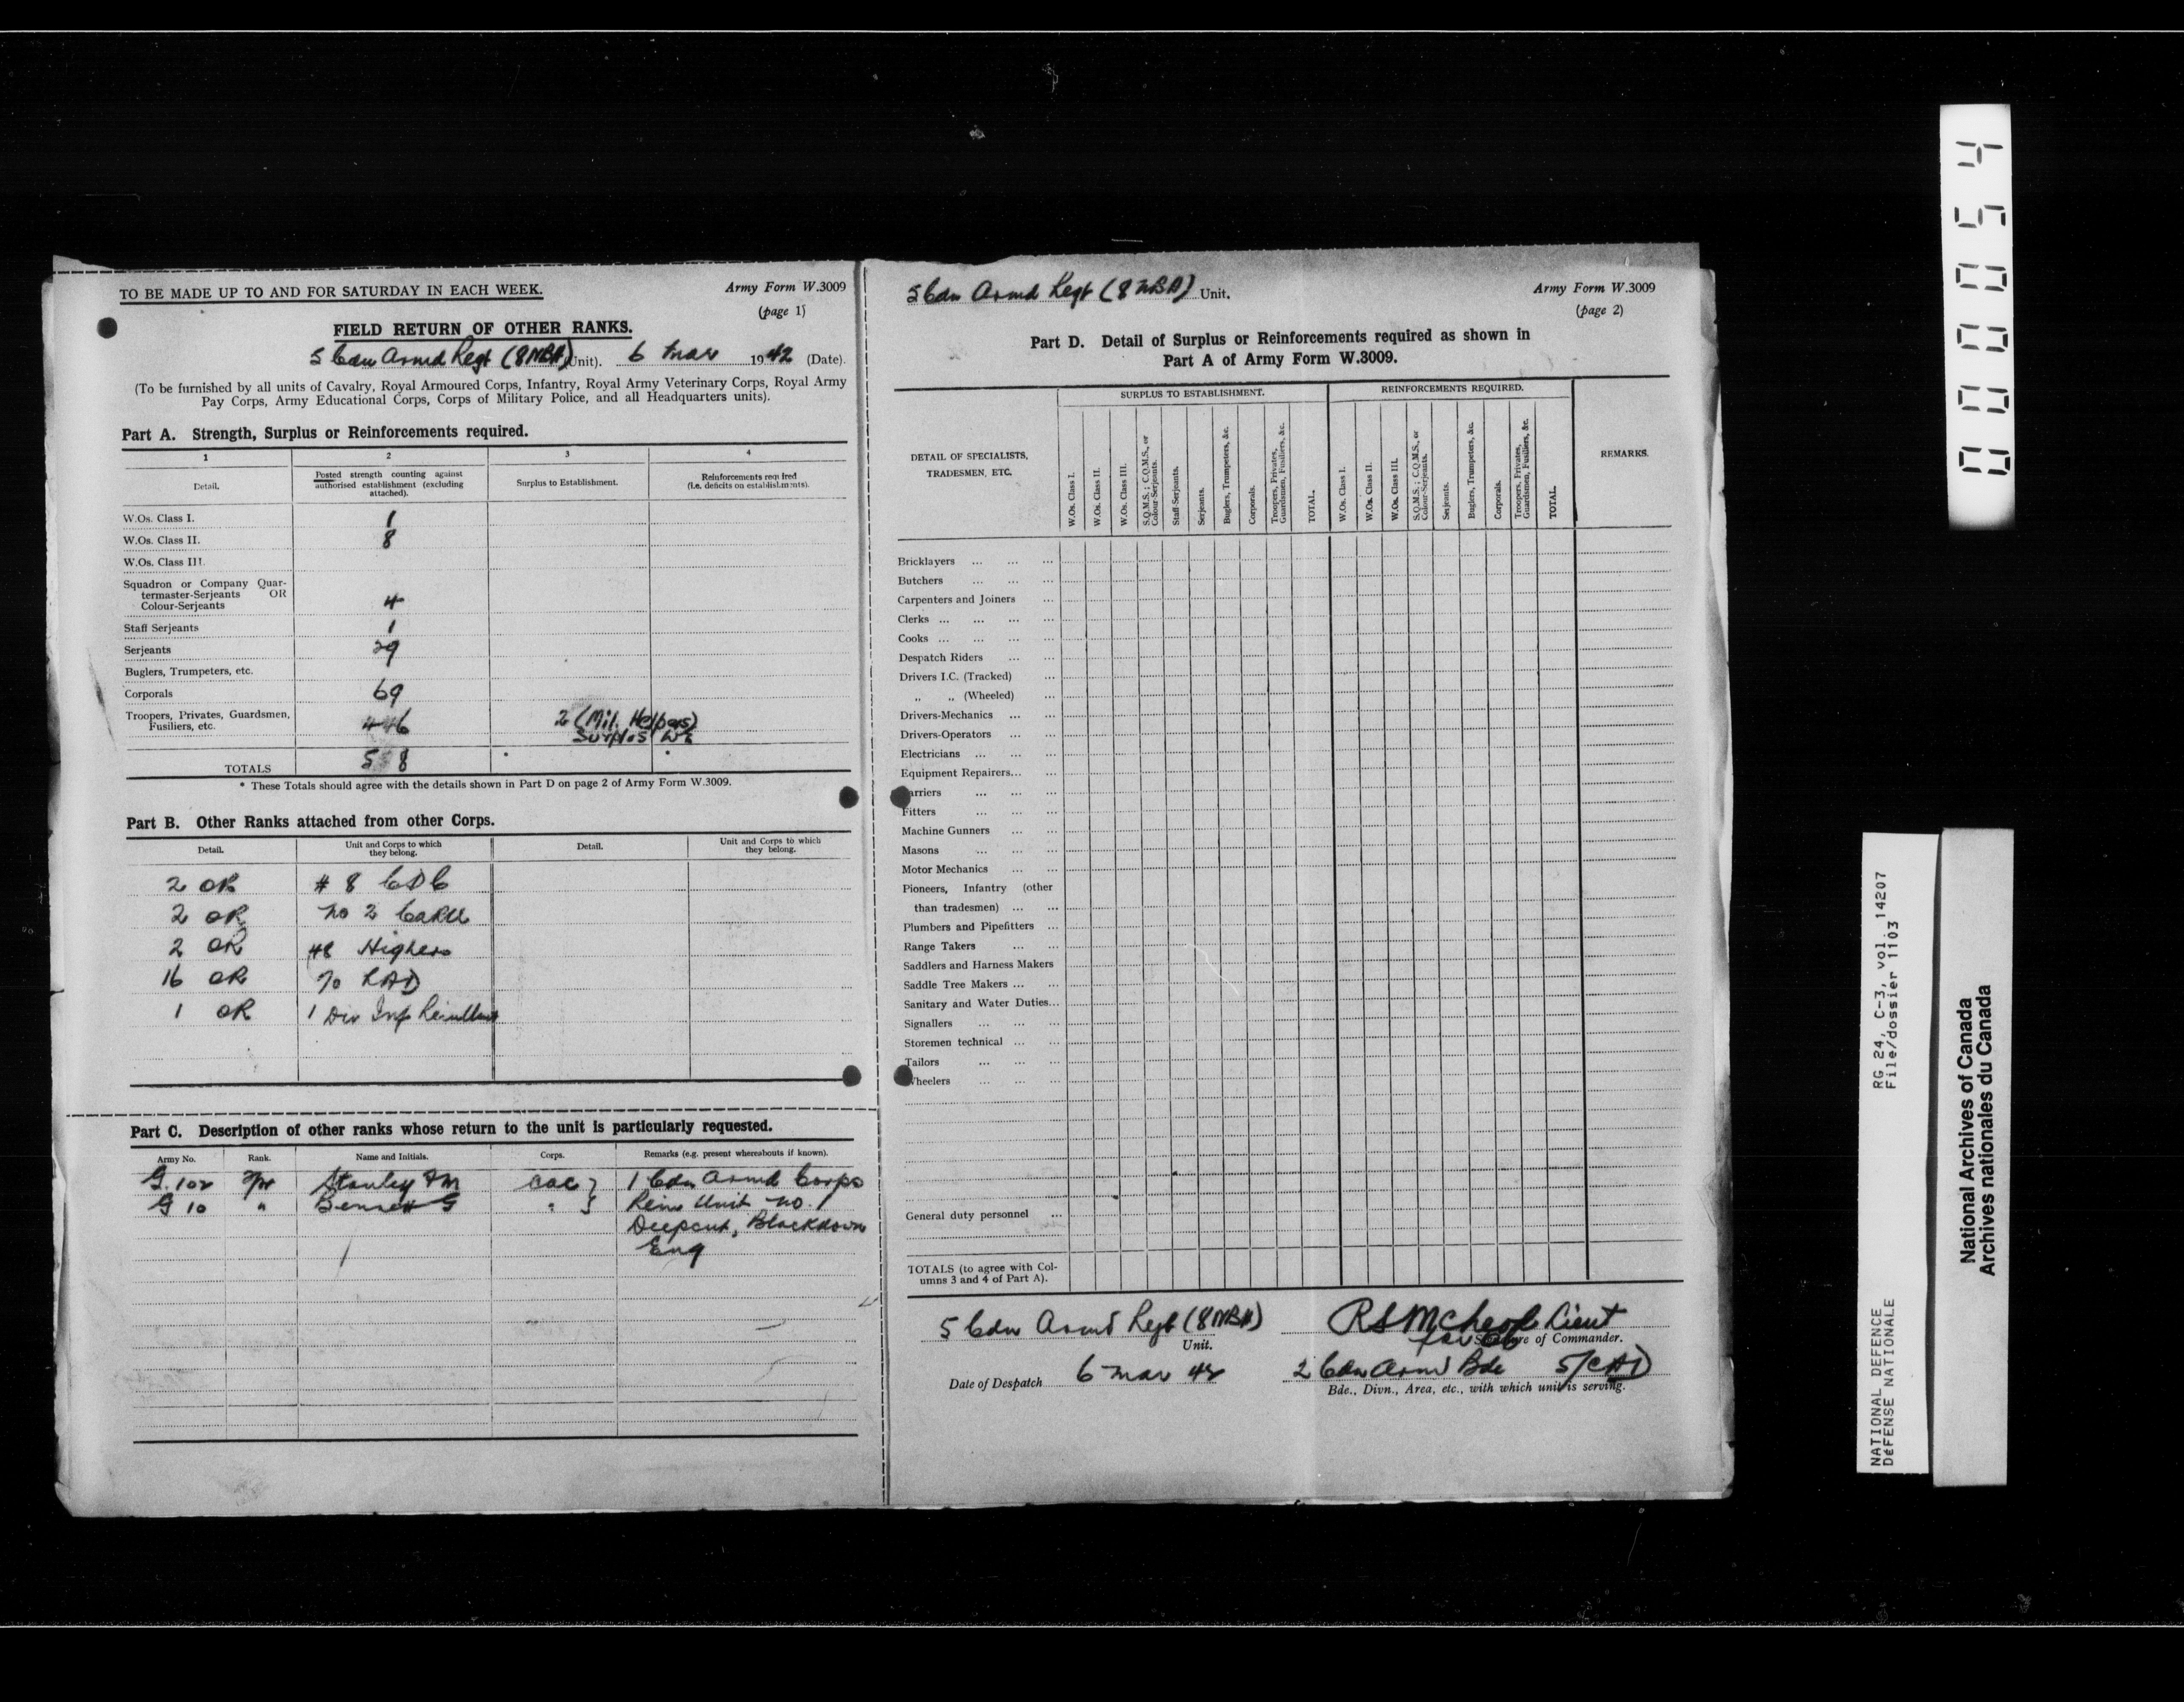 TO BE MADE UP TO AND FOR SATURDAY IN EACH WEEK.
Army Form W.3009
(page 1)
FIELD RETURN OF OTHER RANKS.
5 Cdn Armd Regt (8 NBH) (Unit). 6 Mar 1942 (Date).
(To be furnished by all units of Cavalry, Royal Armoured Corps, Infantry, Royal Army Veterinary Corps, Royal Army
Pay Corps, Army Educational Corps, Corps of Military Police, and all Headquarters units).
Part A. Strength, Surplus or Reinforcements required.
1 2 3 4
Detail.
Posted strength counting against
authorised establishment (excluding
attached).
Surplus to Establishment.
Reinforcements required
(i.e. deficits on establishments).
W.Os. Class I. 1
W.Os. Class II. 8
W.Os. Class III.
Squadron or Company Quar-
termaster-Serjeants OR
Colour-Serjeants 4
Staff Serjeants 1
Serjeants 29
Buglers, Trumpeters, etc.
Corporals 69
Troopers, Privates, Guardsmen,
Fusiliers, etc. 446 2 (Mil. Helpers)
Surplus WE
TOTALS 558
* These Totals should agree with the details shown in Part D on page 2 of Army Form W.3009.
Part B. Other Ranks attached from other Corps.
Detail.
Unit and Corps to which
they belong.
Detail.
Unit and Corps to which
they belong.
2 OR # 8 CDC
2 OR No 2 CACRU
2 OR 48 Highrs
16 OR 70 LAD
1 OR 1 Div Inf Reinf Unit
Part C. Description of other ranks whose return to the unit is particularly requested.
Army No. Rank. Name and Initials. Corps. Remarks (e.g. present whereabouts if known).
G. 102 Tpr Stanley FM CAC } 1 Cdn Armd Corps
G 10 " Bennett G " } Reinf Unit No. 1
Deepcut, Blackdown
Eng
5 Cdn Armd Regt (8 NBH) Unit.
Army Form W.3009
(page 2)
Part D. Detail of Surplus or Reinforcements required as shown in
Part A of Army Form W.3009.
DETAIL OF SPECIALISTS,
TRADESMEN, ETC.
SURPLUS TO ESTABLISHMENT.
W.Os. Class I.
W.Os. Class II.
W.Os. Class III.
S.Q.M.S.; C.Q.M.S., or
Colour-Serjeants.
Staff-Serjeants.
Serjeants.
Buglers, Trumpeters, &c.
Corporals.
Troopers, Privates,
Guardsmen, Fusiliers, &c.
TOTAL.
REINFORCEMENTS REQUIRED.
W.Os. Class I.
W.Os. Class II.
W.Os. Class III.
S.Q.M.S.; C.Q.M.S., or
Colour-Serjeants.
Serjeants.
Buglers, Trumpeters, &c.
Corporals.
Troopers, Privates,
Guardsmen, Fusiliers, &c.
TOTAL.
REMARKS.
Bricklayers ... ... ...
Butchers ... ... ...
Carpenters and Joiners ...
Clerks ... ... ... ...
Cooks ... ... ... ...
Despatch Riders ... ...
Drivers I.C. (Tracked) ...
,, ,, (Wheeled) ...
Drivers-Mechanics ... ...
Drivers-Operators ... ...
Electricians ... ... ...
Equipment Repairers... ...
arriers ... ... ...
Fitters ... ... ...
Machine Gunners ... ...
Masons ... ... ...
Motor Mechanics ... ...
Pioneers, Infantry (other
than tradesmen) ... ...
Plumbers and Pipefitters ...
Range Takers ... ...
Saddlers and Harness Makers
Saddle Tree Makers ... ...
Sanitary and Water Duties...
Signallers ... ... ...
Storemen technical ... ...
Tailors ... ... ...
Wheelers ... ... ...
General duty personnel ...
TOTALS (to agree with Col-
umns 3 and 4 of Part A).
5 Cdn Armd Regt (8 NBH)
Unit.
RS McLeod Lieut
for OC
Signature of Commander.
Date of Despatch 6 Mar 42
2 Cdn Armd Bde 5/CAD
Bde., Divn., Area, etc., with which unit is serving.
000054
NATIONAL DEFENCE RG 24, C-3, vol. 14207
DÉFENSE NATIONALE File/dossier 1103
National Archives of Canada
Archives nationales du Canada